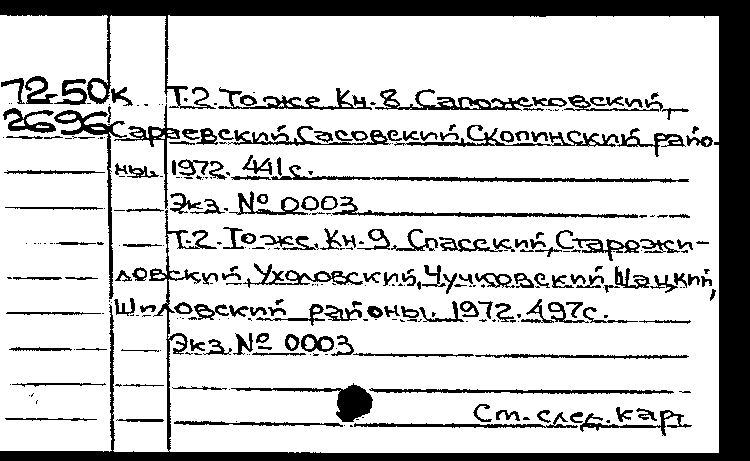 72-50к Т.2. То же Кн.8. Сапожковский,
2696 Сараевский, Сасовский, Скопинский райо-
ны. 1972. 441с.
Экз. № 0003
Т.2. То же. Кн.9. Спасский, Старожи-
ловский, Ухоловский, Чучковский, Шацкий,
Шиловский районы. 1972. 497с.
Экз. № 0003
См. след. карт